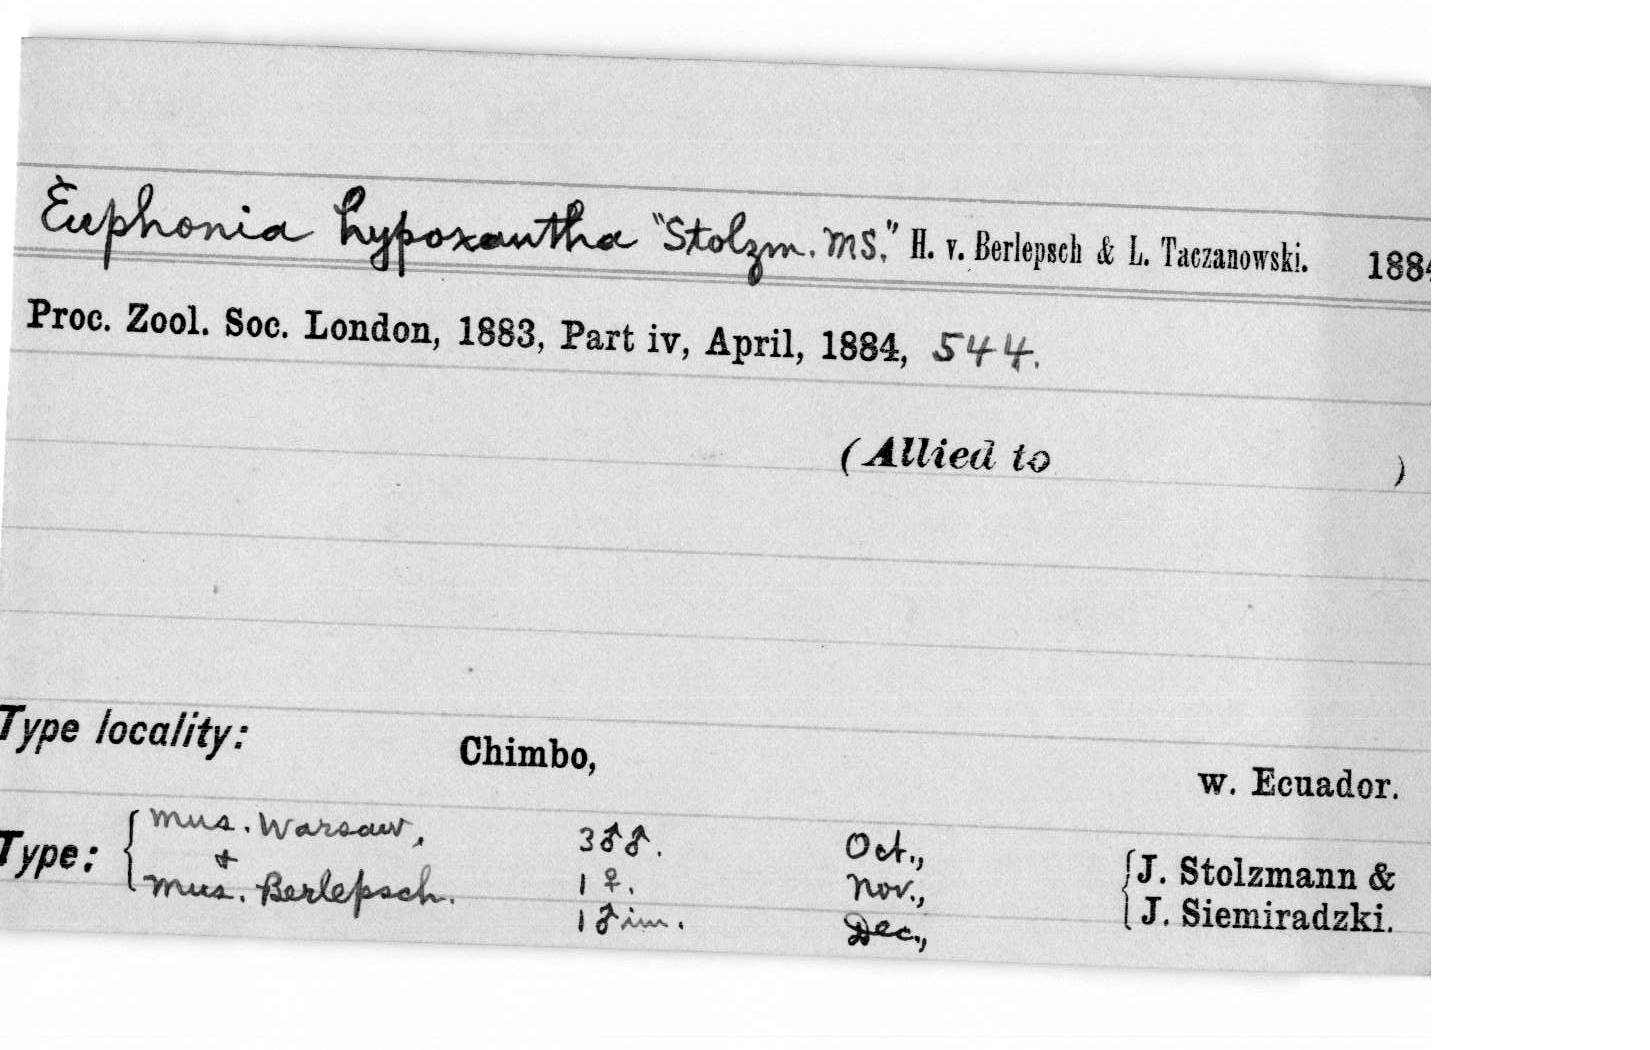 Euphonia hypoxantha "Stolzm. MS." H. v. Berlepsch & L. Taczanowski. 1884
Proc. Zool. Soc. London, 1883, Part iv, April, 1884, 544.
(Allied to )
Type locality: Chimbo, w. Ecuador.
Type: { Mus. Warsaw, 3♂♂. Oct., { J. Stolzmann &
+ 1 ♀. Nov.,
Mus. Berlepsch. 1 ♂ im. Dec., J. Siemiradzki.